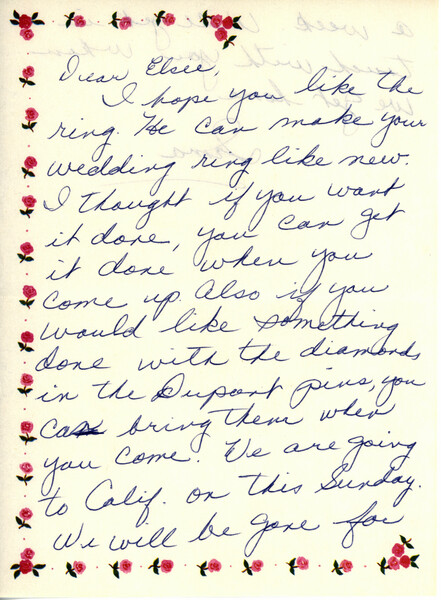 Dear Elsie,
I hope you like the
ring. He can make your
wedding ring like new.
I thought if you want
it done, you can get
it done when you
come up. Also if you
would like something
done with the diamonds
in the Dupont pins, you
can bring them when
you come. We are going
to Calif. on this Sunday.
We will be gone for